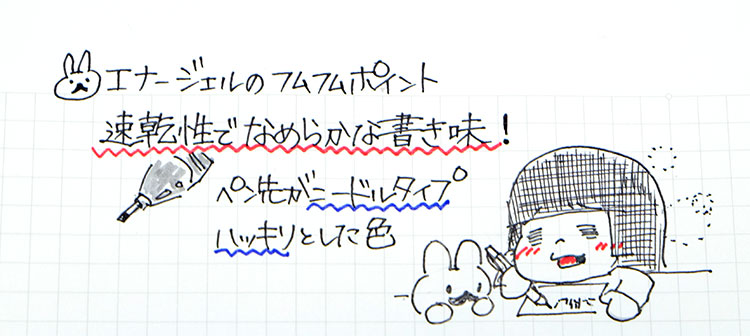 エナージェルのフムフムポイント
速乾性でなめらかな書き味!
ペン先がニードルタイプ
ハッキリとした色